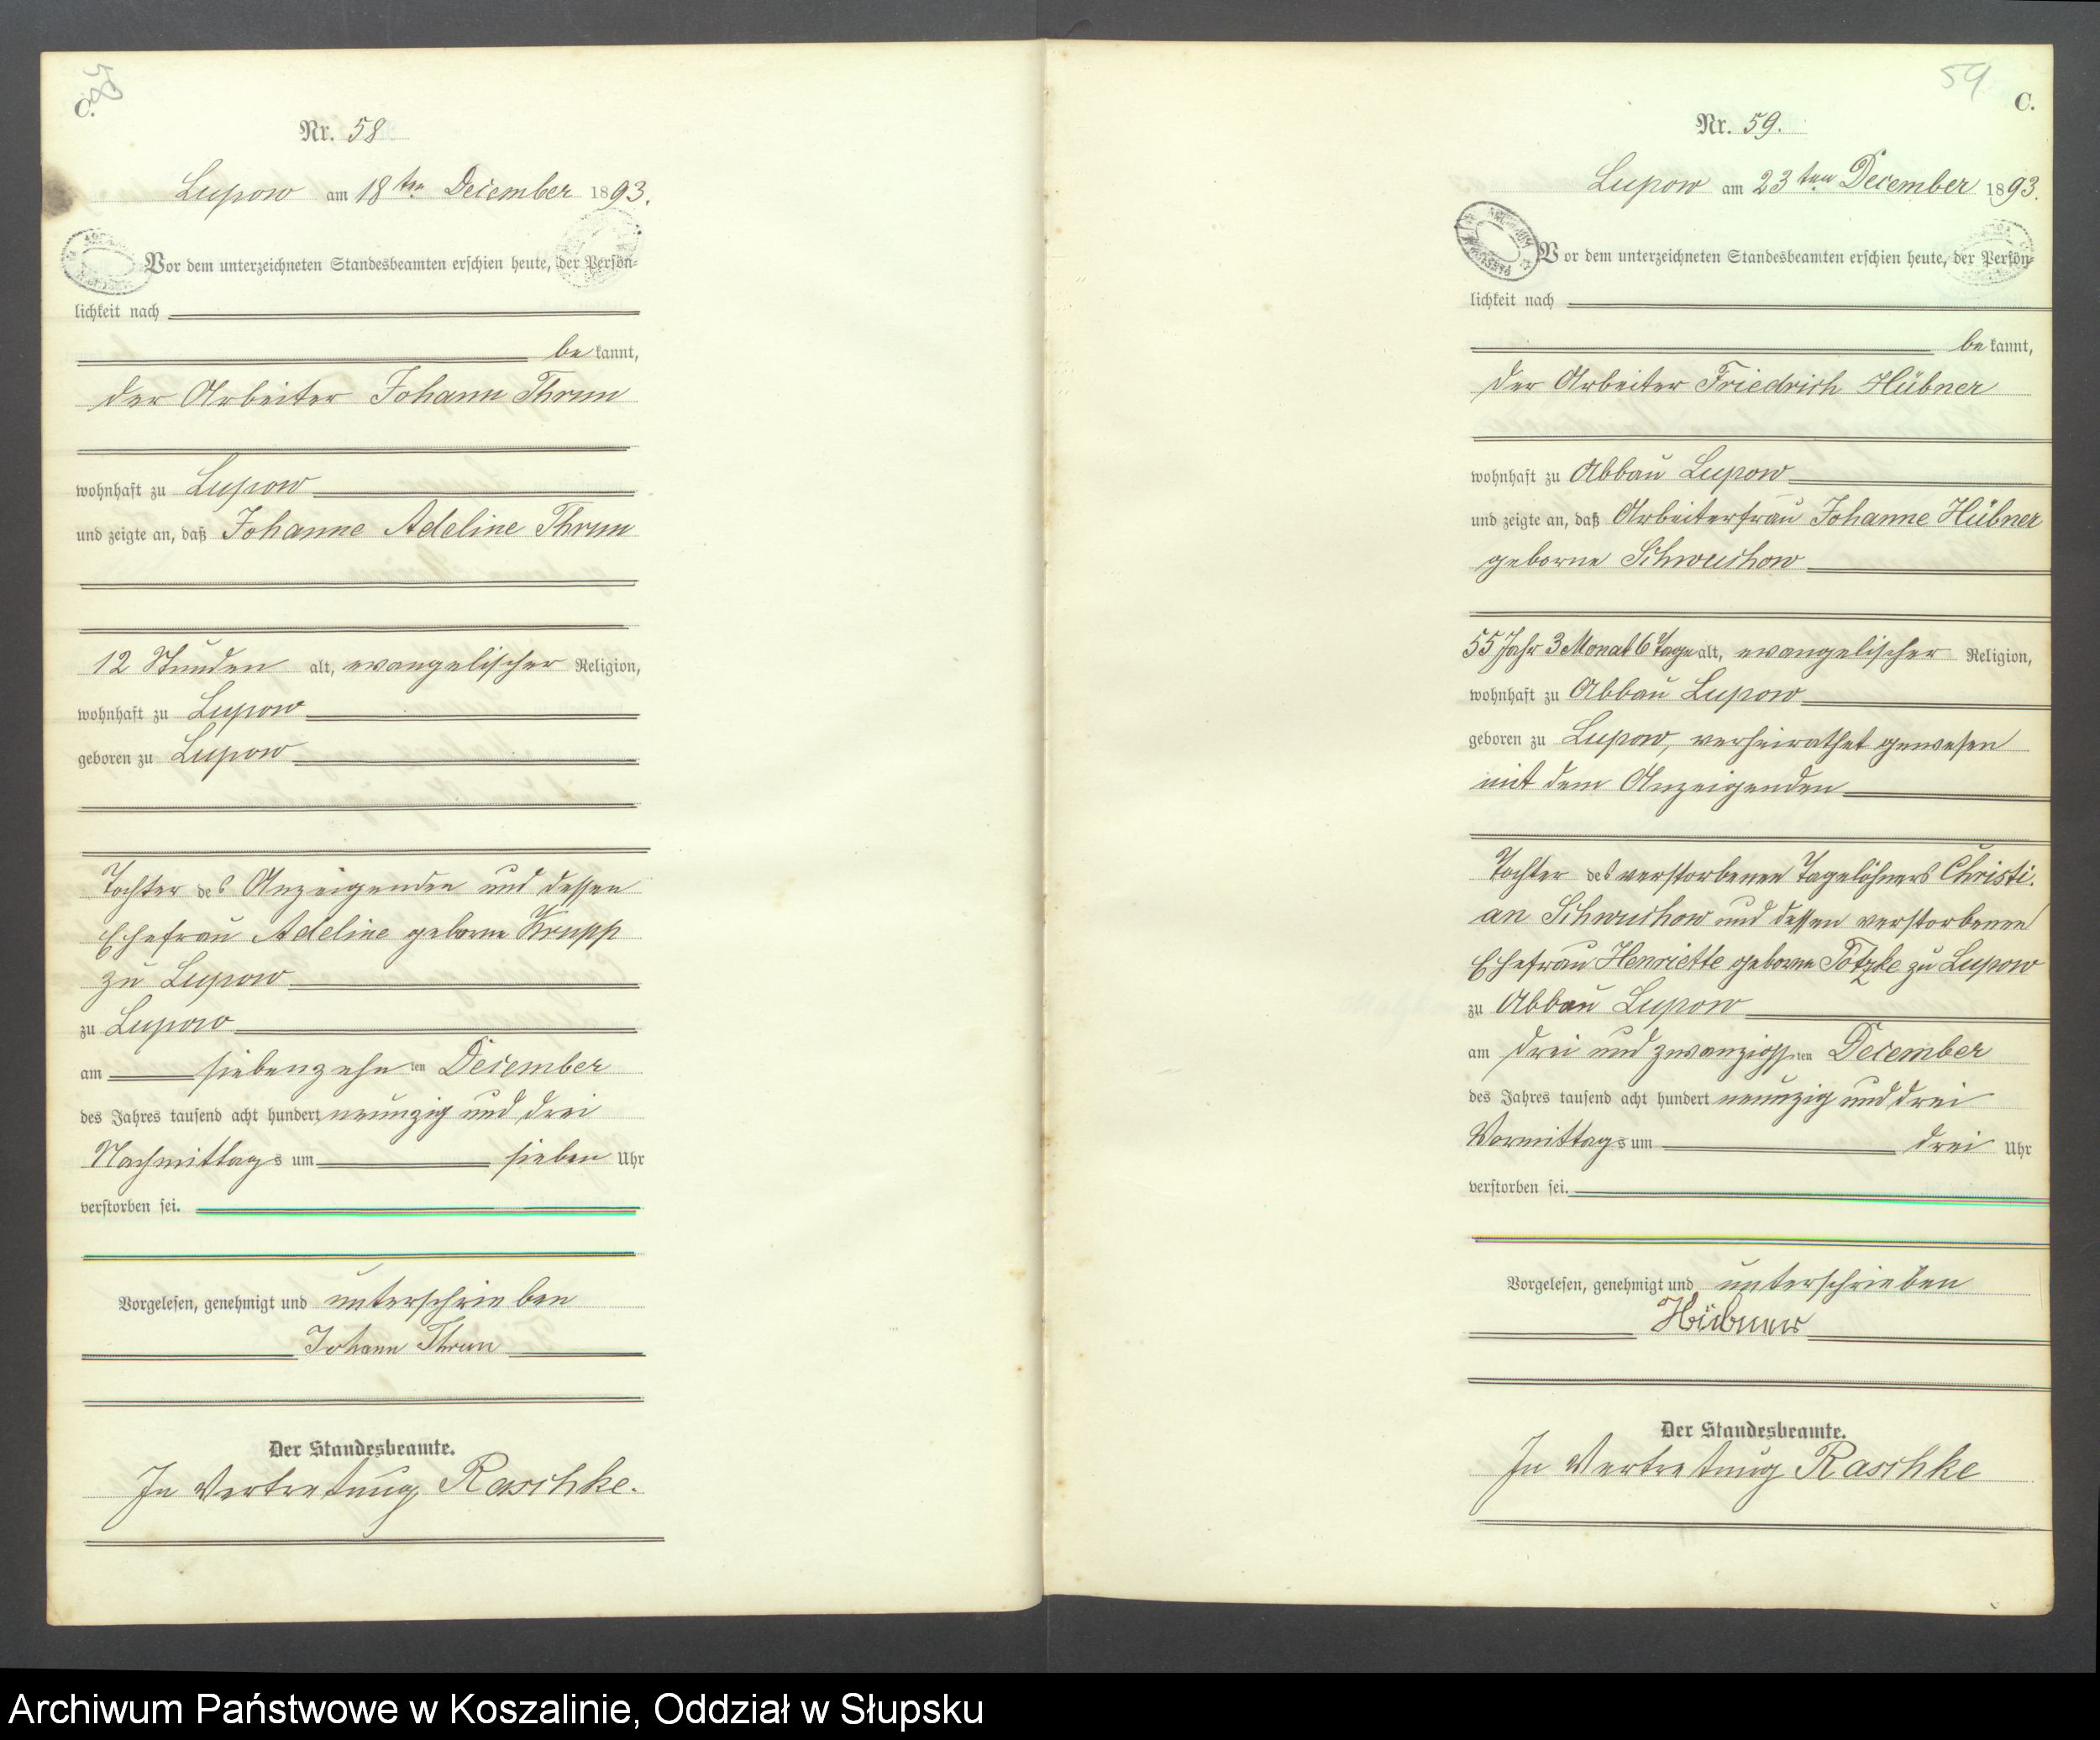 58
C.
Nr. 58
Lupow am 18ten December 1893.
Vor dem unterzeichneten Standesbeamten erschien heute, der Persön-
lichkeit nach
bekannt,
der Arbeiter Johann Thrun
wohnhaft zu Lupow
und zeigte an, daß Johanne Adeline Thrun
12 Stunden alt, evangelischer Religion,
wohnhaft zu Lupow
geboren zu Lupow
Tochter des Anzeigenden und dessen
Ehefrau Adeline geborne Krupp
zu Lupow
zu Lupow
am siebenzehnten December
des Jahres tausend acht hundert neunzig und drei
Nachmittags um sieben Uhr
verstorben sei.
Vorgelesen, genehmigt und unterschrieben
Johann Thrun
Der Standesbeamte.
In Vertretung Raschke.
59
C.
Nr. 59.
Lupow am 23ten December 1893.
Vor dem unterzeichneten Standesbeamten erschien heute, der Persön-
lichkeit nach
bekannt,
der Arbeiter Friedrich Hübner
wohnhaft zu Abbau Lupow
und zeigte an, daß Arbeiterfrau Johanne Hübner
geborne Schwuchow
55 Jahr 3 Monat 6 Tage alt, evangelischer Religion,
wohnhaft zu Abbau Lupow
geboren zu Lupow, verheirathet gewesen
mit dem Anzeigenden
Tochter des verstorbenen Tagelöhners Christi-
an Schwuchow und dessen verstorbenen
Ehefrau Henriette geborne Potzke zu Lupow
zu Abbau Lupow
am drei und zwanzigsten December
des Jahres tausend acht hundert neunzig und drei
Vormittags um drei Uhr
verstorben sei.
Vorgelesen, genehmigt und unterschrieben
Hübner
Der Standesbeamte.
In Vertretung Raschke
Archiwum Państwowe w Koszalinie, Oddział w Słupsku